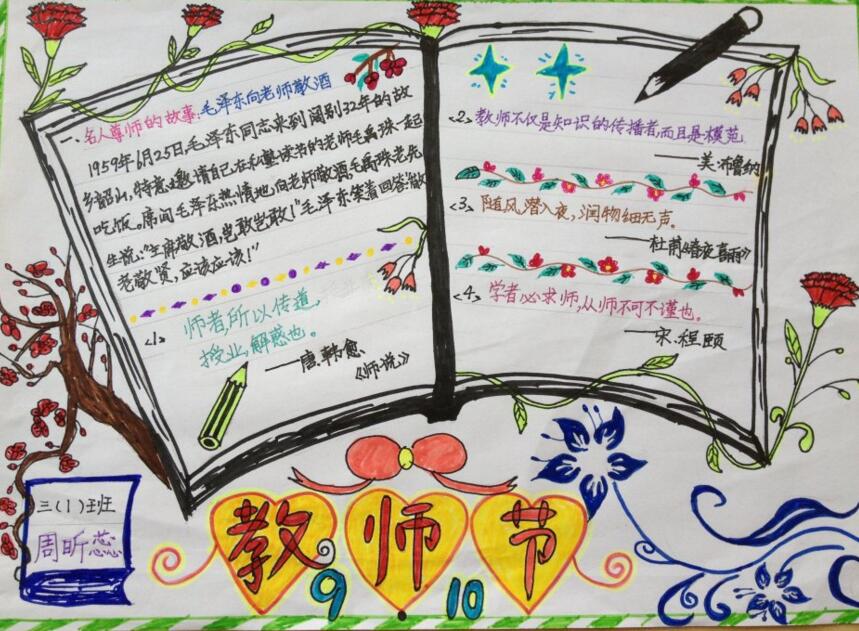 一、名人尊师的故事:毛泽东向老师敬酒
1959年6月25日,毛泽东同志来到阔别32年的故
乡韶山,特意邀请自己在私塾读书的老师毛禹珠一起
吃饭。席间毛泽东热情地向老师敬酒,毛禹珠老先
生说:"主席敬酒,岂敢岂敢!"毛泽东笑着回答"敬
老敬贤,应该应该!"
<1> 师者,所以传道,
授业,解惑也。
——唐.韩愈
《师说》
<2> 教师不仅是知识的传播者,而且是模范
——美.布鲁纳
<3> 随风潜入夜,润物细无声。
——杜甫《春夜喜雨》
<4> 学者必求师,从师不可不谨也。
——宋.程颐
三(1)班
周昕蕊
教师节
9.10